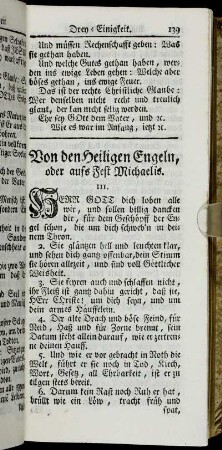 Drey-Einigkeit. 139
Und müssen Rechenschafft geben: Was
sie gethan haben.
Und welche Gutes gethan haben, wer-
den ins ewige Leben gehen: Welche aber
böses gethan, ins ewige Feuer.
Das ist der rechte Christliche Glaube:
Wer denselben nicht recht und treulich
glaubt, der kan nicht selig werden.
Ehr sey GOtt dem Vater, und ꝛc.
Wie es war im Anfang, jetzt ꝛc.
Von den Heiligen Engeln,
oder aufs Fest Michaelis.
III.
HERR GOTT dich loben alle
wir, und sollen billig dancken
dir, für dein Geschöpff der En-
gel schon, die um dich schweb'n in dei-
nem Thron.
2. Sie gläntzen hell und leuchten klar,
und sehen dich gantz offenbar, dein Stimm
sie hören allezeit, und sind voll Göttlicher
Weisheit.
3. Sie feyren auch und schlaffen nicht,
ihr Fleiß ist gantz dahin gericht, daß sie,
HErr CHriste! um dich seyn, und um
dein armes Häuffelein.
4. Der alte Drach und böse Feind, für
Neid, Haß und für Zorne brennt, sein
Datum steht allein darauf, wie er zertrenne
deinen Hauff.
5. Und wie er vor gebracht in Noth die
Welt, führt er sie noch in Tod, Kirch,
Wort, Gesetz, all Ehrbarkeit, ist er zu
tilgen stets bereit.
6. Darum kein Rast noch Ruh er hat,
brüllt wie ein Löw, tracht früh und
spat,